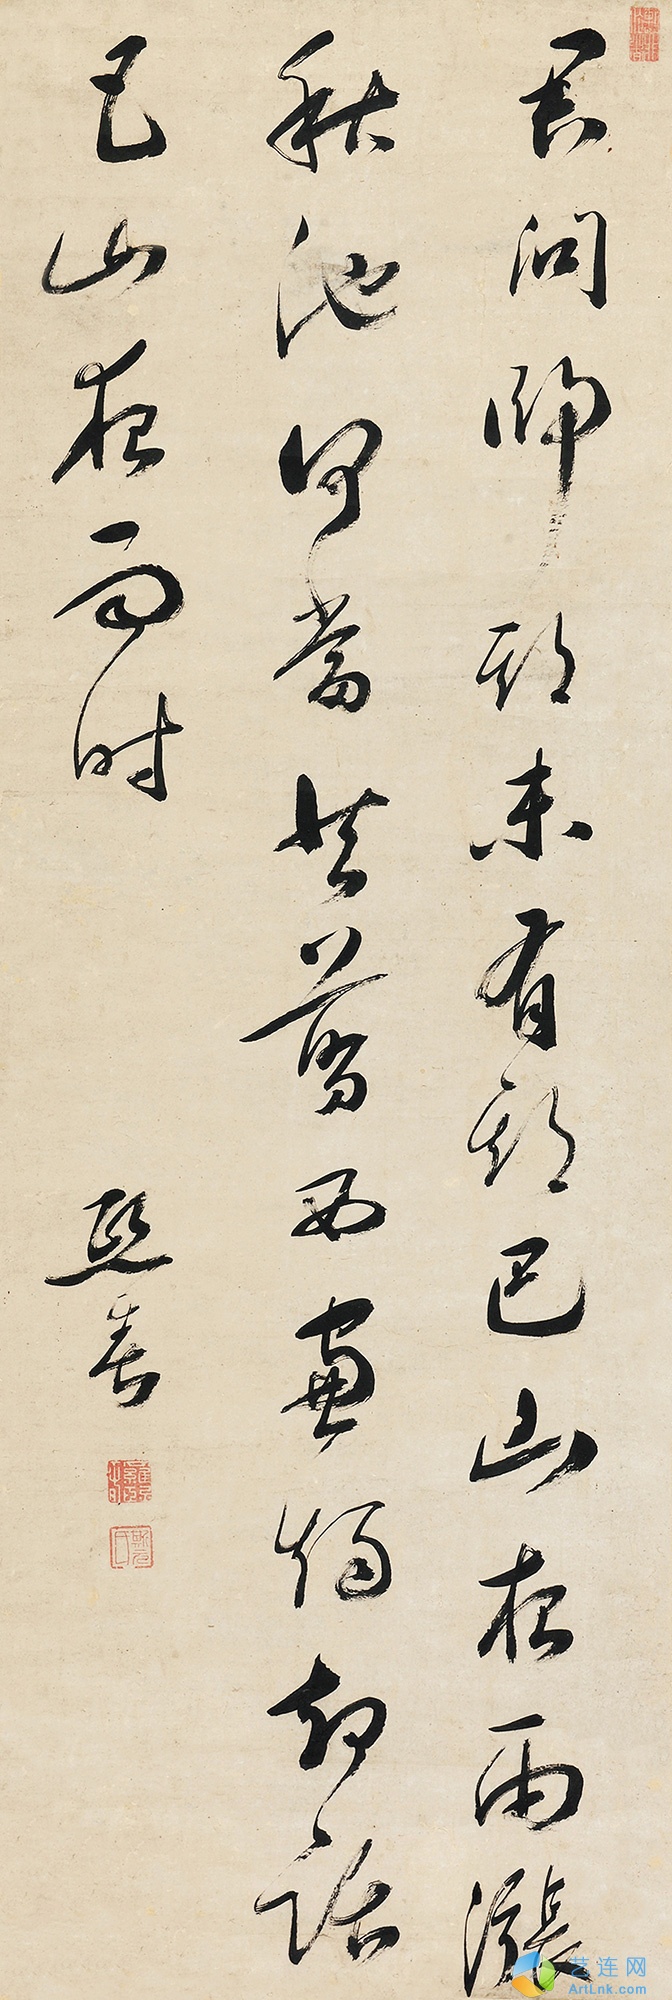 君问归期未有期巴山夜雨涨
秋池何当共剪西窗烛却话
巴山夜雨时
熙春
艺连网
ArtLnk.com